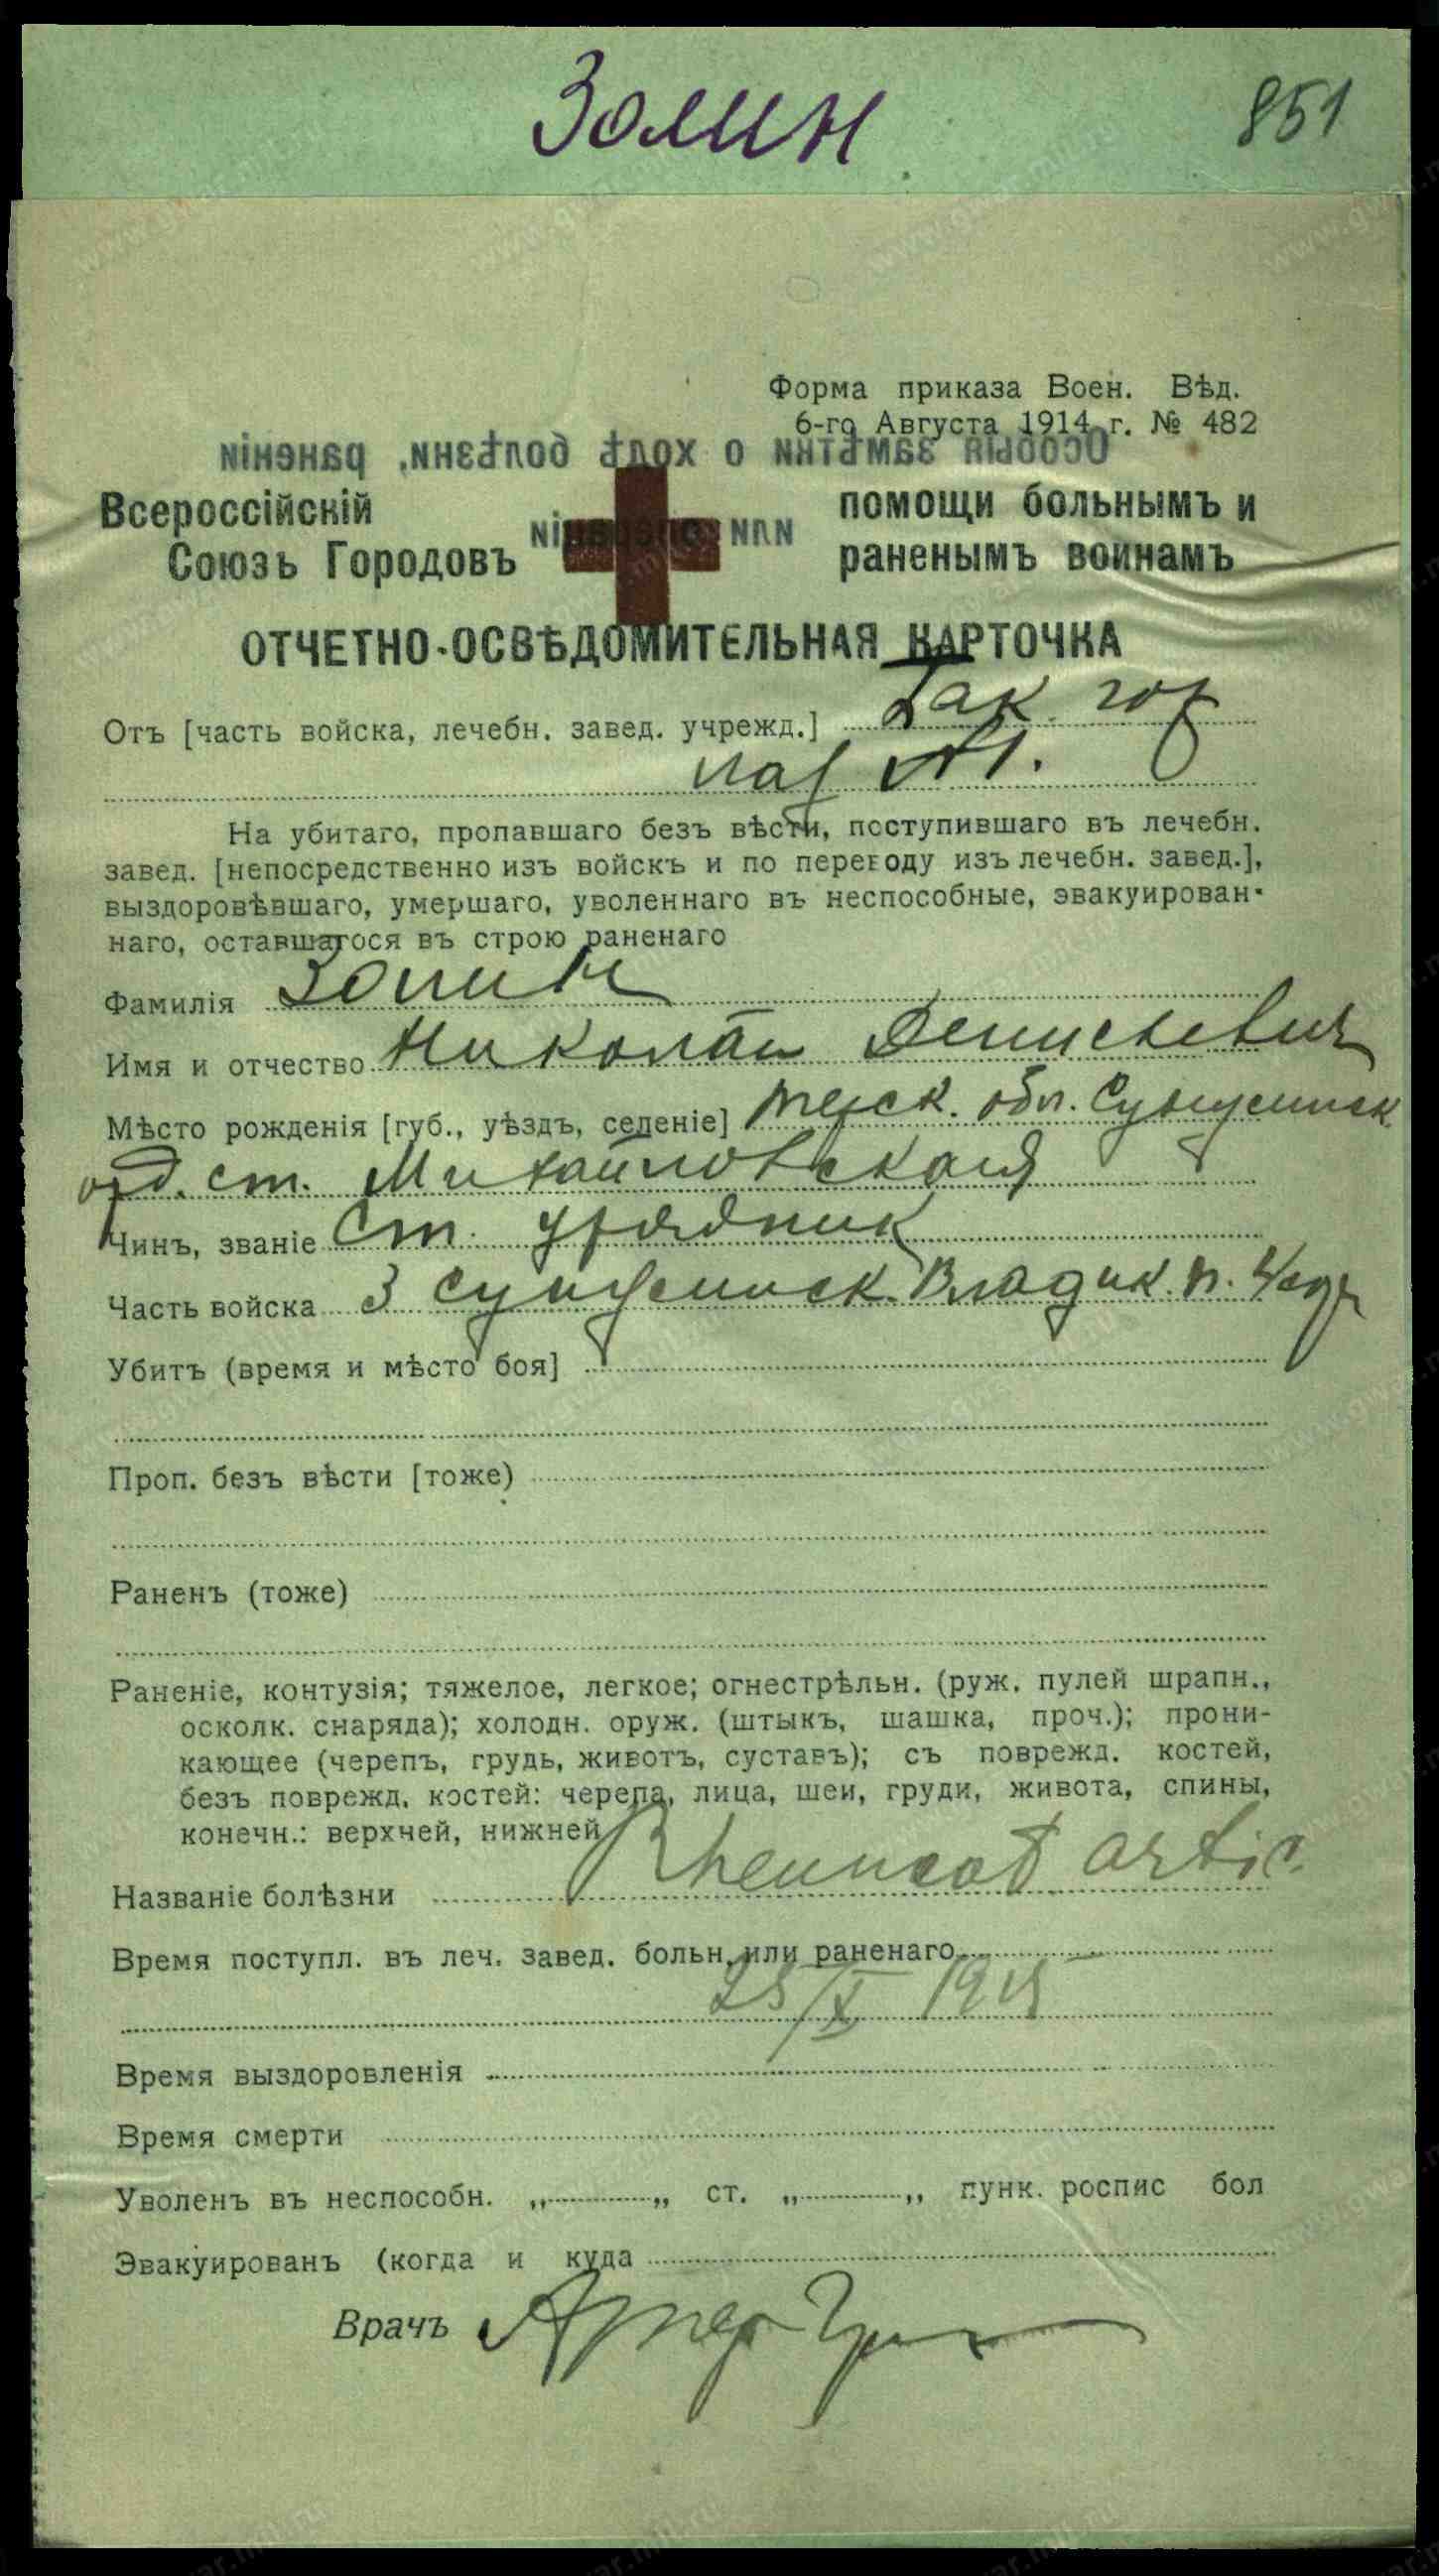 Золин
851
Форма приказа Воен. Вѣд.
6-го Августа 1914 г. № 482
Особыя замѣтки о ходѣ болѣзни, раненія
или
Всероссійскій помощи больнымъ и
Союзъ Городовъ раненымъ воинамъ
ОТЧЕТНО-ОСВѢДОМИТЕЛЬНАЯ КАРТОЧКА
Отъ [часть войска, лечебн. завед. учрежд.] Бак. гор
лаз №1.
На убитаго, пропавшаго безъ вѣсти, поступившаго въ лечебн.
завед. [непосредственно изъ войскъ и по переводу изъ лечебн. завед.],
выздоровѣвшаго, умершаго, уволеннаго въ неспособные, эвакуирован-
наго, оставшагося въ строю раненаго
Фамилія Золин
Имя и отчество Николай Денисьевич
Мѣсто рожденія [губ., уѣздъ, селеніе] терск. обл. Сунженск.
отд. ст. Михайловская
Чинъ, званіе Ст. урядник
Часть войска 3 Сунженск. Владик. п.
Убитъ (время и мѣсто боя]
Проп. безъ вѣсти [тоже)
Раненъ (тоже)
Раненіе, контузія; тяжелое, легкое; огнестрѣльн. (руж. пулей шрапн.,
осколк. снаряда); холодн. оруж. (штыкъ, шашка, проч.); прони-
кающее (черепъ, грудь, животъ, суставъ); съ поврежд. костей,
безъ поврежд. костей: черепа, лица, шеи, груди, живота, спины,
конечн.: верхней, нижней
Названіе болѣзни Rheumat artic.
Время поступл. въ леч. завед. больн. или раненаго
25/X 1915
Время выздоровленія
Время смерти
Уволенъ въ неспособн. „ „ ст. „ „ пунк. роспис бол
Эвакуированъ (когда и куда
Врачъ